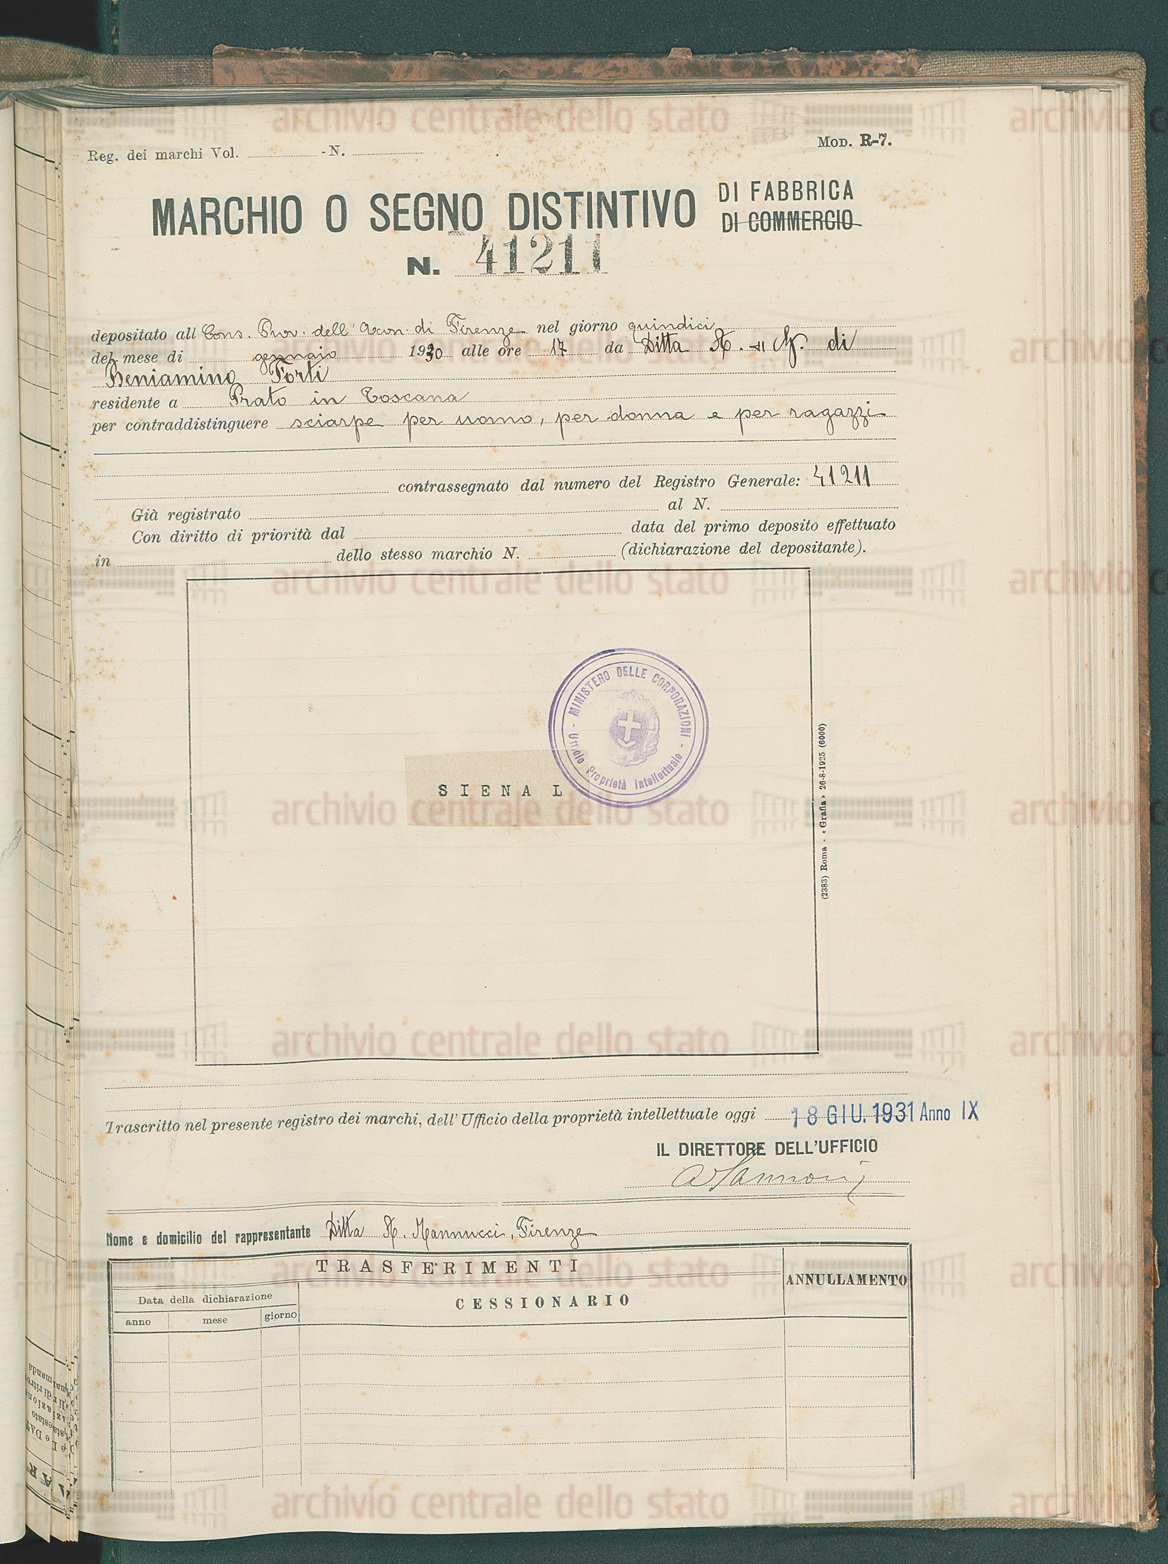 Reg. dei marchi Vol. - N.
MOD. R-7.
MARCHIO O SEGNO DISTINTIVO DI FABBRICA
DI COMMERCIO
N. 41211
depositato all Cons. Prov. dell'Econ. di Firenze nel giorno quindici
del mese di gennaio 1930 alle ore 17 da Ditta A. di
Beniamino Forti
residente a Prato in Toscana
per contraddistinguere sciarpe per uomo, per donna e per ragazzi
contrassegnato dal numero del Registro Generale: 41211
Già registrato al N.
Con diritto di priorità dal data del primo deposito effettuato
in dello stesso marchio N. (dichiarazione del depositante).
MINISTERO DELLE CORPORAZIONI
Ufficio Proprietà Intellettuale
SIENAL
(2383) Roma - «Grafia» 26-8-1925 (6000)
Trascritto nel presente registro dei marchi, dell'Ufficio della proprietà intellettuale oggi 18 GIU. 1931 Anno IX
IL DIRETTORE DELL'UFFICIO
Nome e domicilio del rappresentante Ditta A. Mannucci, Firenze
TRASFERIMENTI
ANNULLAMENTO
Data della dichiarazione
CESSIONARIO
anno mese giorno
archivio centrale dello stato